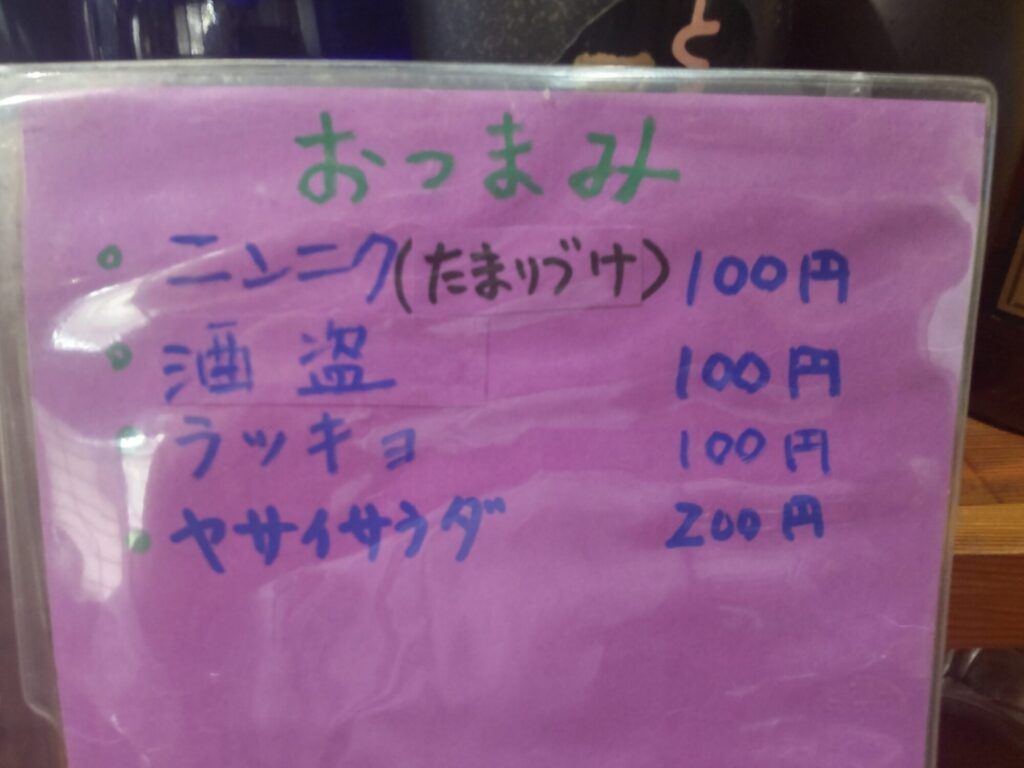 と
おつまみ
ニンニク(たまりづけ) 100円
酒盗 100円
ラッキョ 100円
ヤサイサラダ 200円